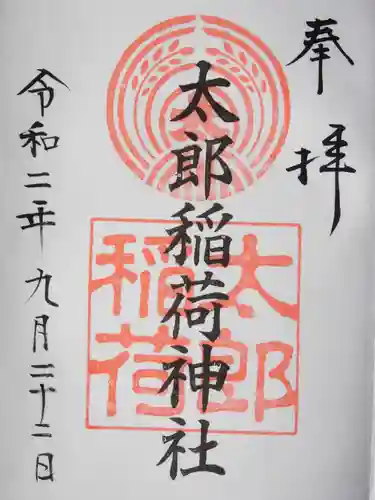 奉拝
太郎稲荷神社
太郎稲荷
令和二年九月二十二日